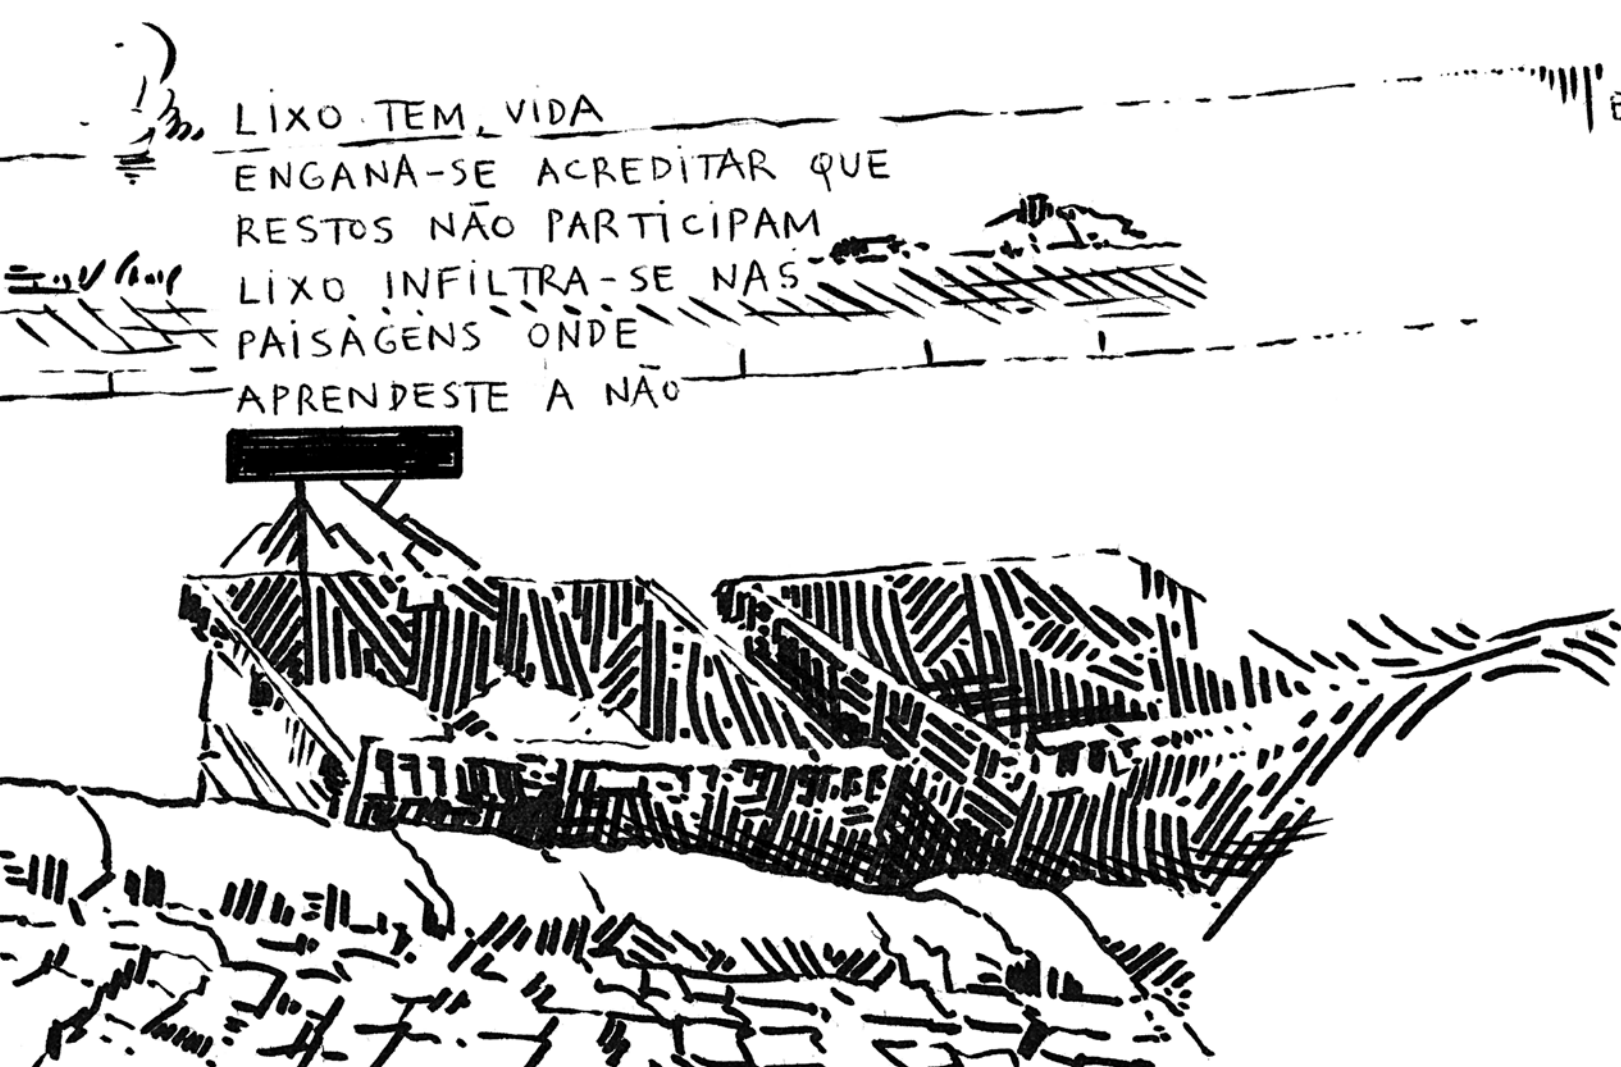 LIXO TEM VIDA
ENGANA-SE ACREDITAR QUE
RESTOS NÃO PARTICIPAM
LIXO INFILTRA-SE NAS
PAISAGENS ONDE
APRENDESTE A NÃO